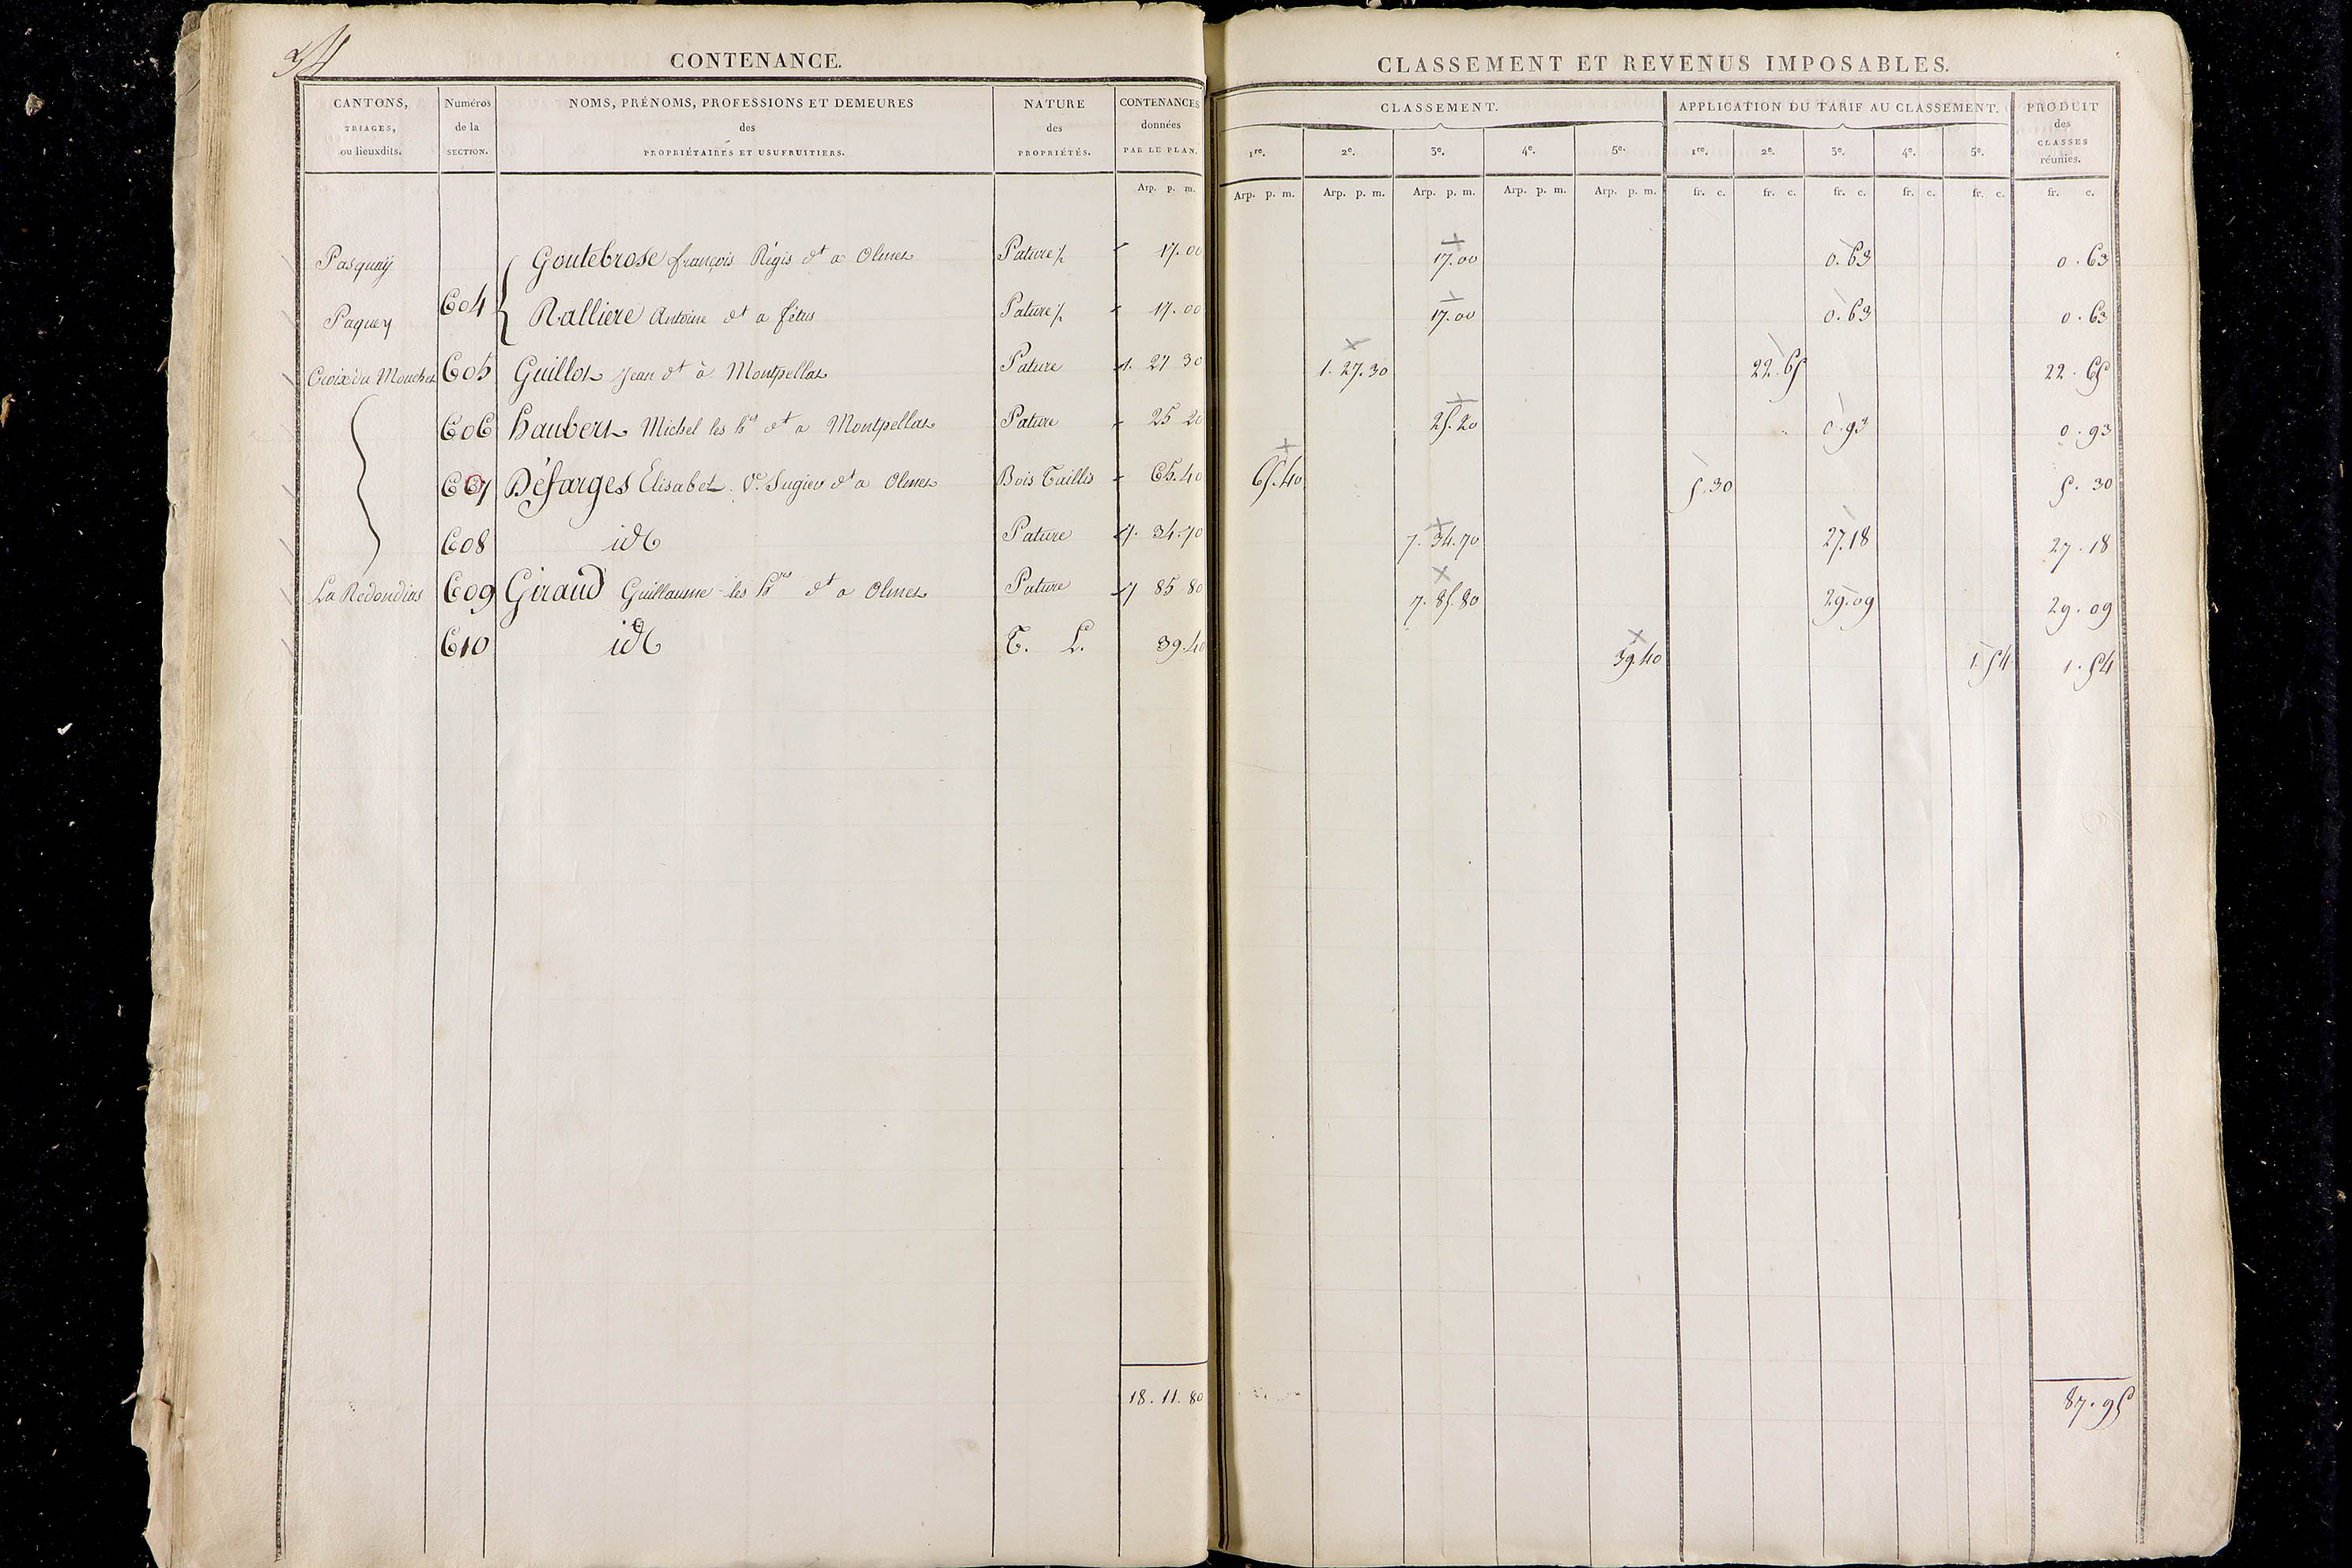 34
CONTENANCE.
CANTONS, TRIAGES, ou lieuxdits.
Numéros de la SECTION.
NOMS, PRÉNOMS, PROFESSIONS ET DEMEURES des PROPRIÉTAIRES ET USUFRUITIERS.
NATURE des PROPRIÉTÉS.
CONTENANCES données PAR LE PLAN.
Arp. p. m.
CLASSEMENT ET REVENUS IMPOSABLES.
CLASSEMENT.
1re. 2e. 3e. 4e. 5e.
APPLICATION DU TARIF AU CLASSEMENT.
1re. 2e. 3e. 4e. 5e.
PRODUIT des CLASSES réunies.
Arp. p. m. Arp. p. m. Arp. p. m. Arp. p. m. Arp. p. m. fr. c. fr. c. fr. c. fr. c. fr. c. fr. c.
Pasquaÿ 604 Goutebrose françois Régis dt a Olmet Pature 17.00 17.00 0.63 0.63
Paquey Ralliere Antoine dt a fétus Pature 17.00 17.00 0.63 0.63
Croix du 605 Guillot Jean dt à Montpellat Pature 1. 27 30 1. 27. 30 22. 65 22. 65
606 haubert Michel les hrs dt a Montpellat Pature 25 20 25. 20 0. 93 0. 93
607 Défarges Elisabet Ve dt a Olmet Bois Taillis 65. 40 65. 40 5. 30 5. 30
608 id Pature 7. 34. 70 7. 34. 70 27. 18 27. 18
La Redondias 609 Giraud Guillaume les hrs dt a Olmet Pature 7 85 80 7. 85. 80 29. 09 29. 09
610 id T. L. 39. 40 39. 40 1. 54 1. 54
18. 11. 80 87. 95